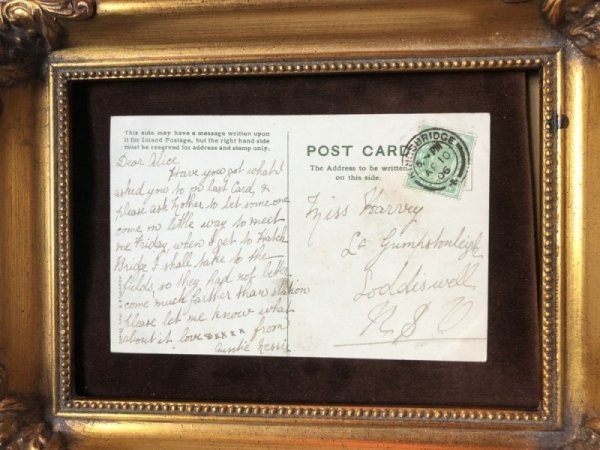 This side may have a message written upon
it for Inland Postage, but the right hand side
must be reserved for address and stamp only.
Dear Alice
Have you got what I
asked you to on last Card, &
please ask Mother to let some one
come on little way to meet
me Friday, when I get to Hatch
Bridge I shall take to the
fields, so they had not better
come much farther than station
Please let me know what
about it love xxxxx from
Auntie Nessie
POST CARD
The Address to be written
on this side.
KINGSBRIDGE
PM
10
06
Miss Harvey
Lr Gumpstonleigh
Loddiswell